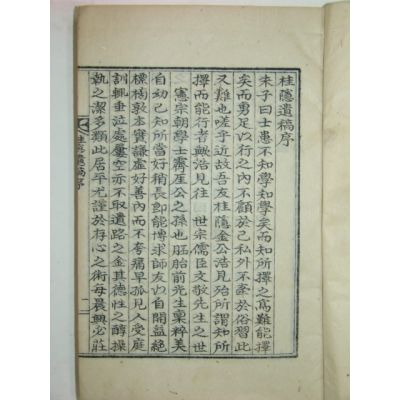 桂隱遺稿序
朱子曰士患不知學知學矣而知所擇之爲難能擇
矣而勇足以行之內不顧於己私外不牽於俗習此
又難也嗟乎近故吾友桂隱金公浩見殆所謂知所
擇而能行者歟浩見往 世宗儒臣文敬先生之世
憲宗朝學士齊厓公之孫也胚胎前光生禀粹美
自幼已知所當好稍長卽能博求師友以自開益絶
標榜敦本實謙虛好善內而不夸痛早孤見人受庭
訓輒垂泣處屢空亦不取遺路之金其德性之醇操
執之潔多類此居平尤謹於存心之術每晨興必莊
桂隱遺稿序